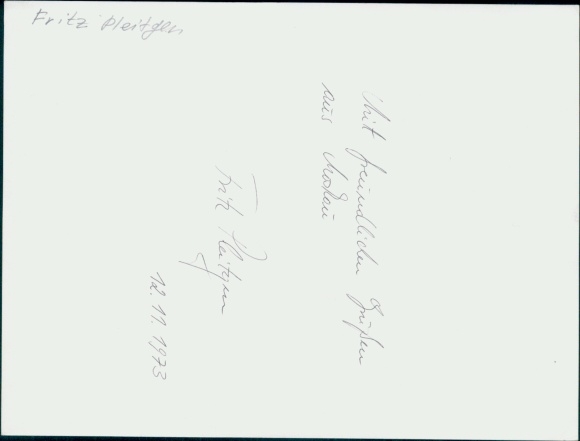 Fritz Pleitgen
Mit freundlichen Grüßen
aus Moskau
Fritz Pleitgen
12.11.1973